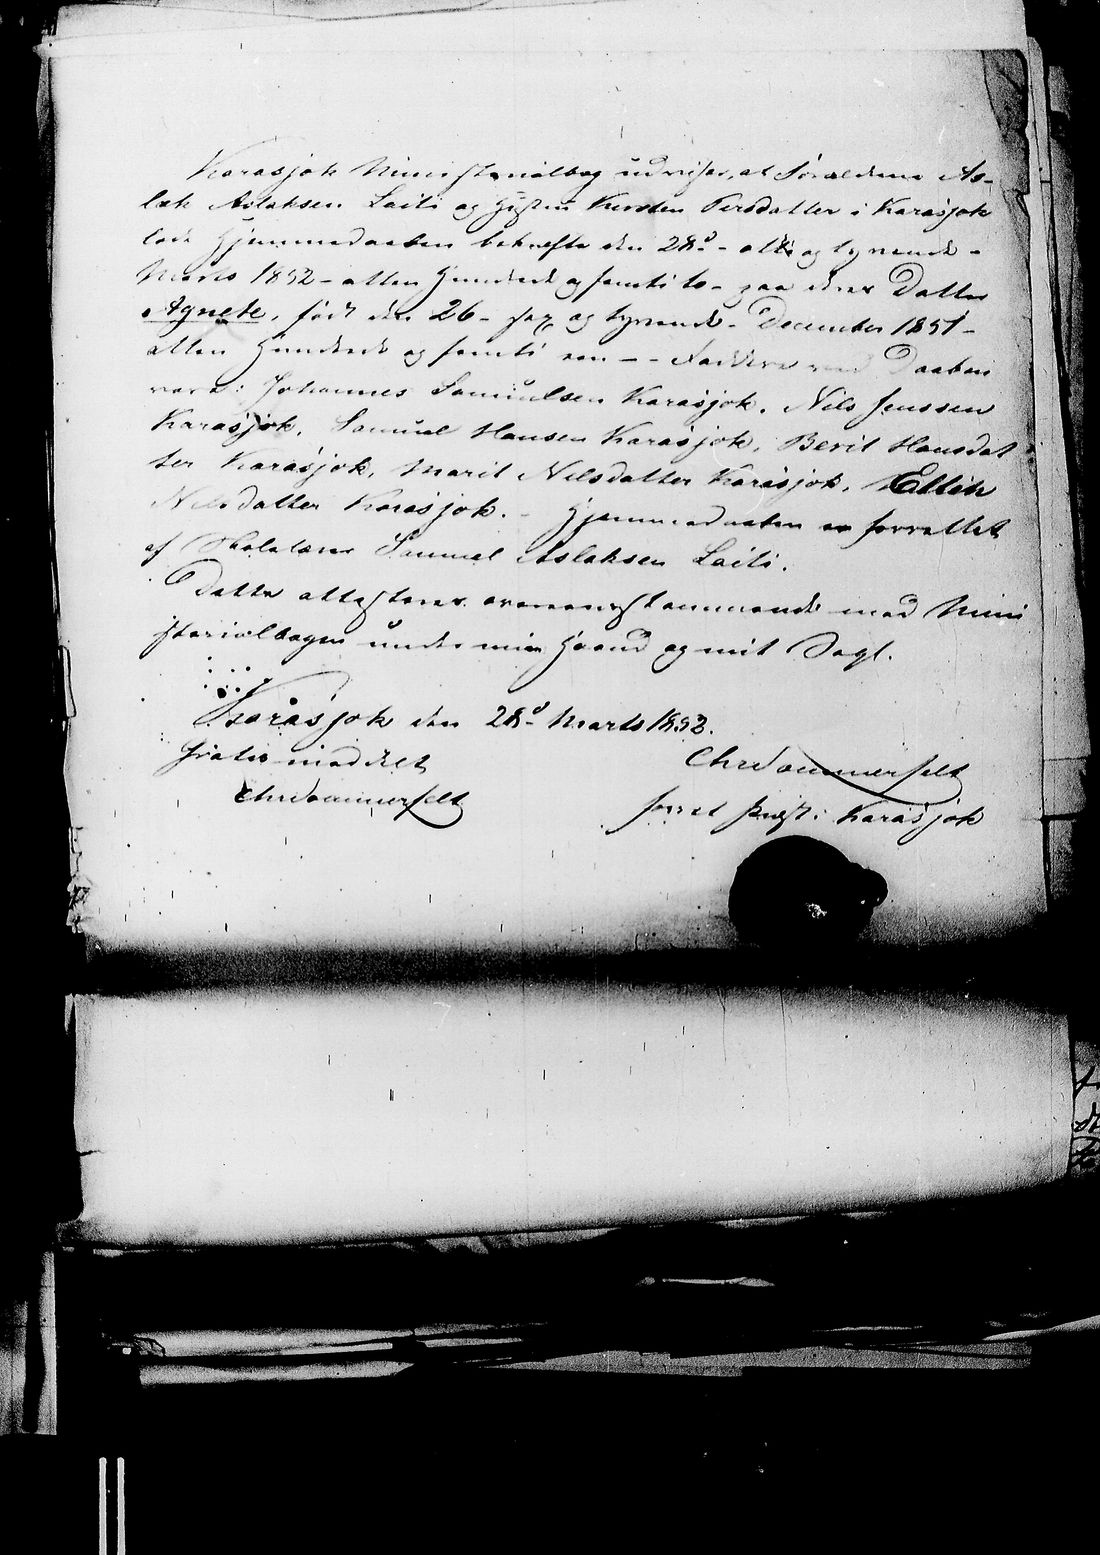 Karasjok Ministerialbog udviser, at Forældrene As-
lak Aslaksen Laiti og Hustru Kirsten Persdatter i Karasjok
lode Hjemmedaaben bekræfte den 28d - otte og tyvende -
Marts 1852 - atten Hundrede og femti to - paa deres Datter
Agnete, født den 26 - sex og tyvende - December 1851 -
atten Hundrede og femti een - - Faddere ved Daaben
vare: Johannes Samuelsen Karasjok, Nils Jenssen
Karasjok, Samuel Hansen Karasjok, Berit Hansdat
ter Karasjok, Marit Nilsdatter Karasjok, Ellen
Nilsdatter Karasjok. - Hjemmedaaben er forrettet
af Skolelærer Samuel Aslaksen Laiti.
Dette attesteres overeensstemmende med Mini
sterialbogen under min Haand og mit Segl.
Karasjok den 28d Marts 1852.
Gratis meddelt
Chr Sommerfelt
Chr Sommerfelt
forret Præst i Karasjok